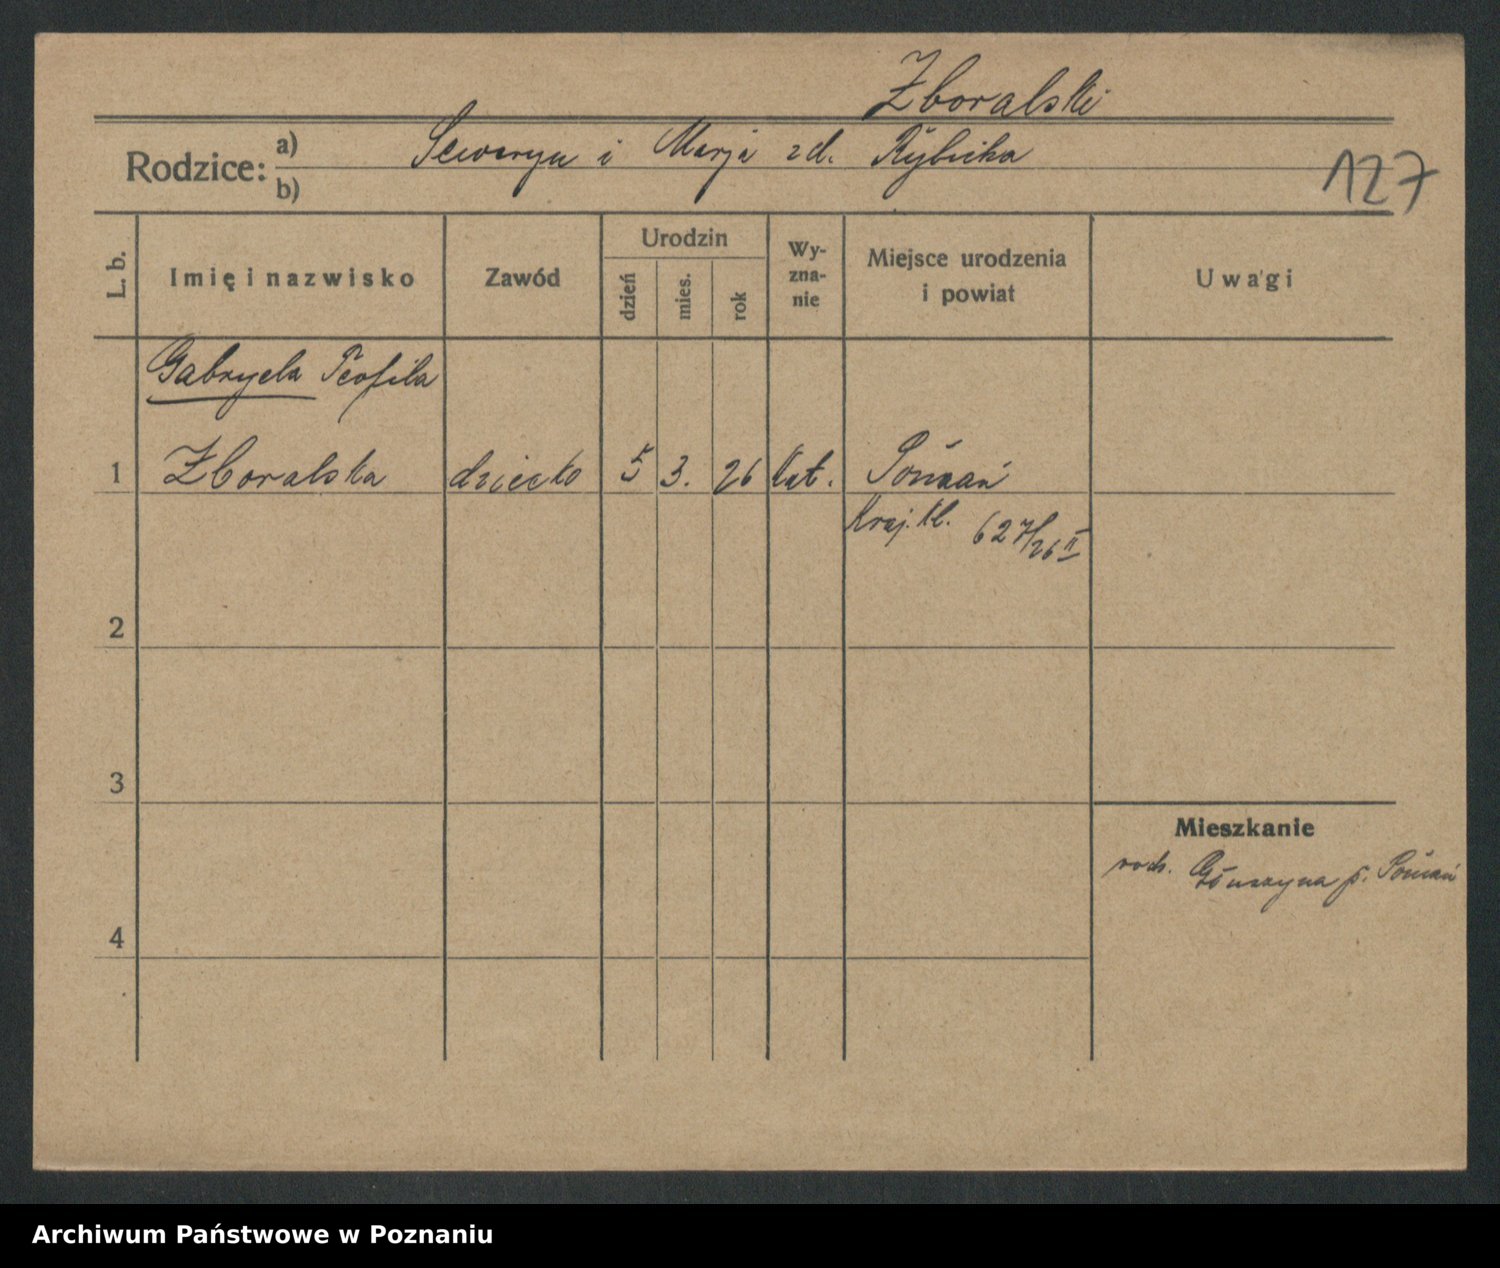 Zboralski
Rodzice: a) Seweryn i Marja zd. Rybicka
b)
127
L. b.
Imię i nazwisko
Zawód
Urodzin
dzień
mies.
rok
Wy-
zna-
nie
Miejsce urodzenia
i powiat
Uwagi
Gabryela Teofila
1 Zboralska dziecko 5 3. 26 kat. Poznań
Kraj. Kl. 627/26 II
2
3
Mieszkanie
rodz. p. Poznań
4
Archiwum Państwowe w Poznaniu